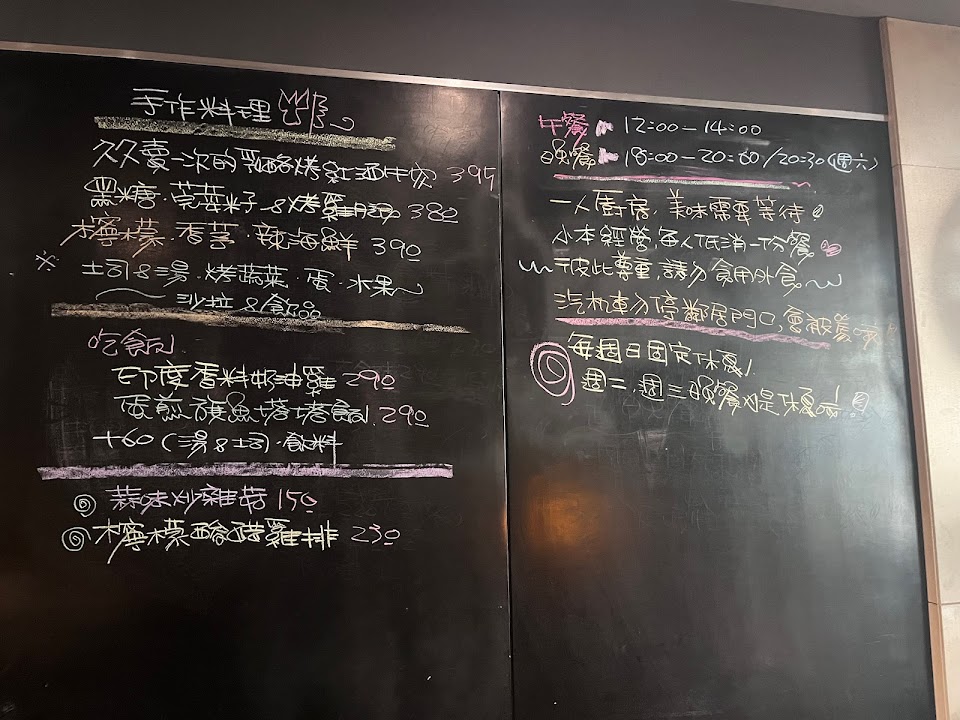 手作料理
久久賣一次的乳酪烤紅酒牛肉 395
黑糖·荒荽籽&烤雞腿 380
檸檬·香茅·辣海鮮 390
※ 土司&湯·烤蔬菜·蛋·水果
沙拉&飲品
吃飯
印度香料奶油雞 290
蛋煎旗魚塔塔飯 290
+60(湯&土司)·飲料
蒜味炒雞菇 150
檸檬酸醋雞排 230
午餐 12:00-14:00
晚餐 18:00-20:00/20:30(週六)
一人廚房,美味需要等待!
小本經營,每人低消一份餐
彼此尊重,請勿食用外食
汽机車勿停鄰居門口,會被罵
每週日固定休息!
週二、週三晚餐也是休息